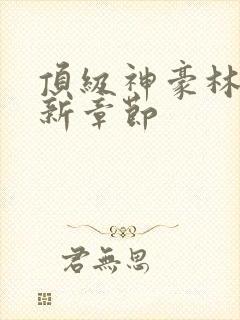 頂級神豪林
新章節
君無思